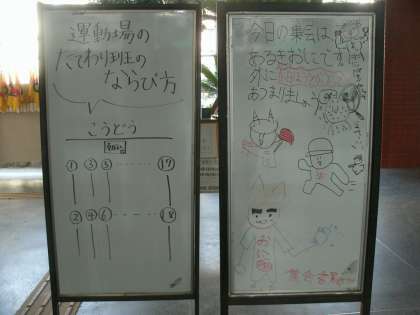 運動場の
たてわり班の
ならび方
こうどう
① ③ ⑤ ⑰
② ④ ⑥ ⑱
今日の集会は
あるきおにごです
外に
あつまりましょう
おに